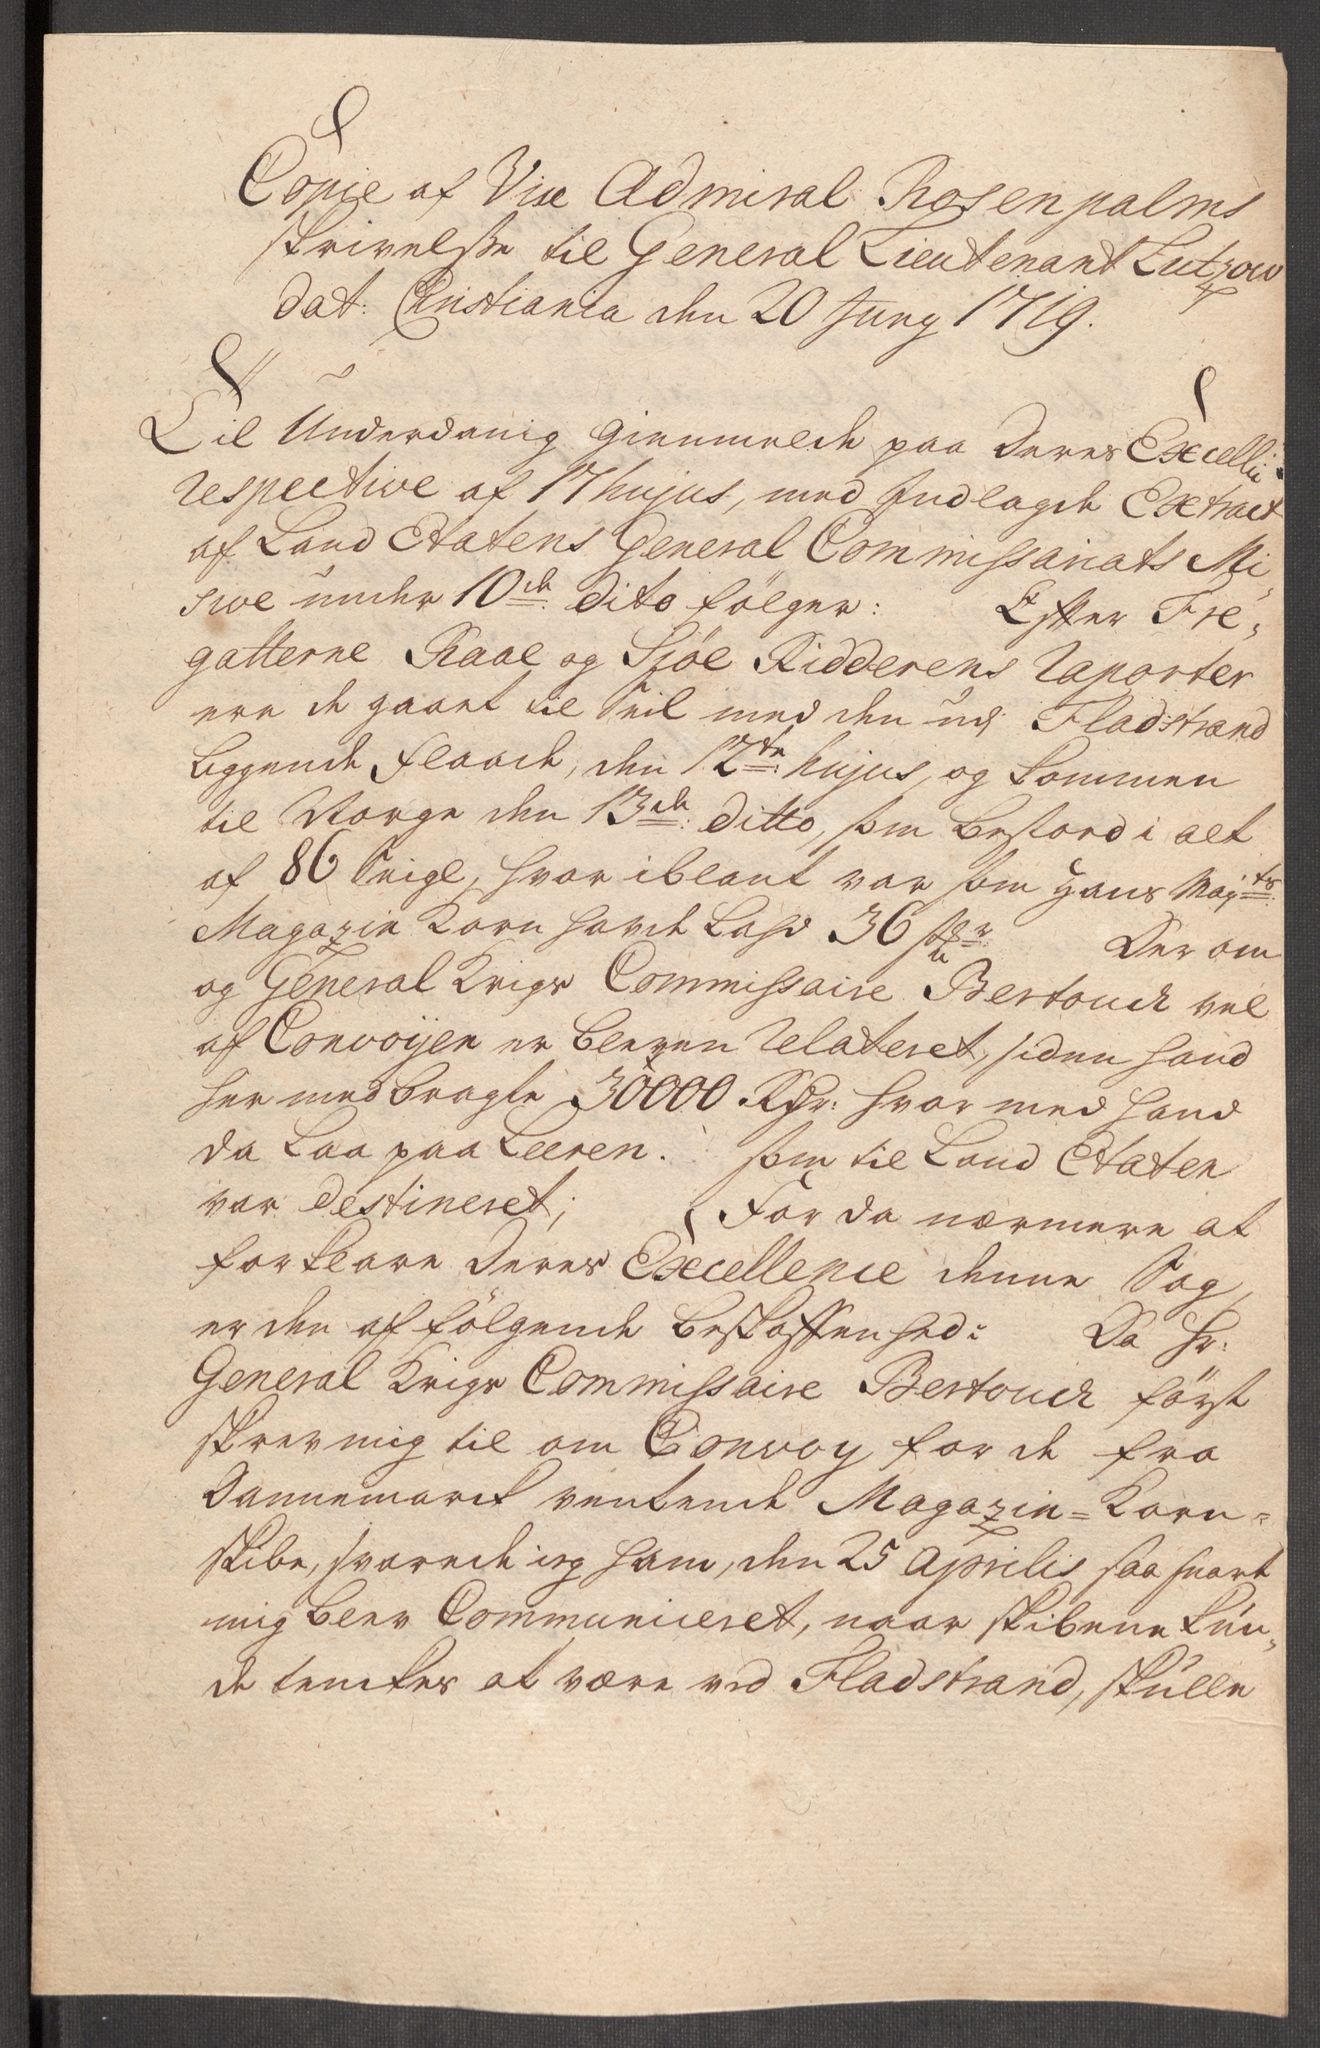 Copie af Vice Admiral Rosenpalms
skrivelsse til General Lieutenant Lutzow
dat: Christiania den 20 Juny 1719.
Til Underdanig gienmelde paa Deres Excell:
respective af 17 hujus, med Indlagde Extract
af Land Etatens General Commissariats Mi-
sive under 10de dito følger: Efter Fre-
gatterne Raae og Sjöe Ridderens raporter
ere de gaaet til Seil med den ud Fladstrand
liggende Flaade, den 12te hujus, og kommen
til Norge den 13de ditto, som bestood i alt
af 86 Seigl, hvor iblant var som Hans Mayts
Magazin Korn hafde Lahd 36 stkr Der om
og General Krigs Commissaire Bertouch vel
af Convoyen er bleven relateret, siden hand
her med bragte 30000 Rdr: hvor med hand
da Laa paa Leeren. som til Land Etaten
var destineret; For da nærmere at
forklare Deres Excellence denne Sag,
er den af følgende beskaffenhed: Da Hr:
General Krigs Commissaire Bertouch först
skrev mig til om Convoy for de fra
Dannemarck ventende Magazin-Korn-
skibe, svarede ieg ham, den 25 Aprilis saa snart
mig blev Communiceret, naar skibene kun-
de tenckes at være ved Fladstrand, skulle